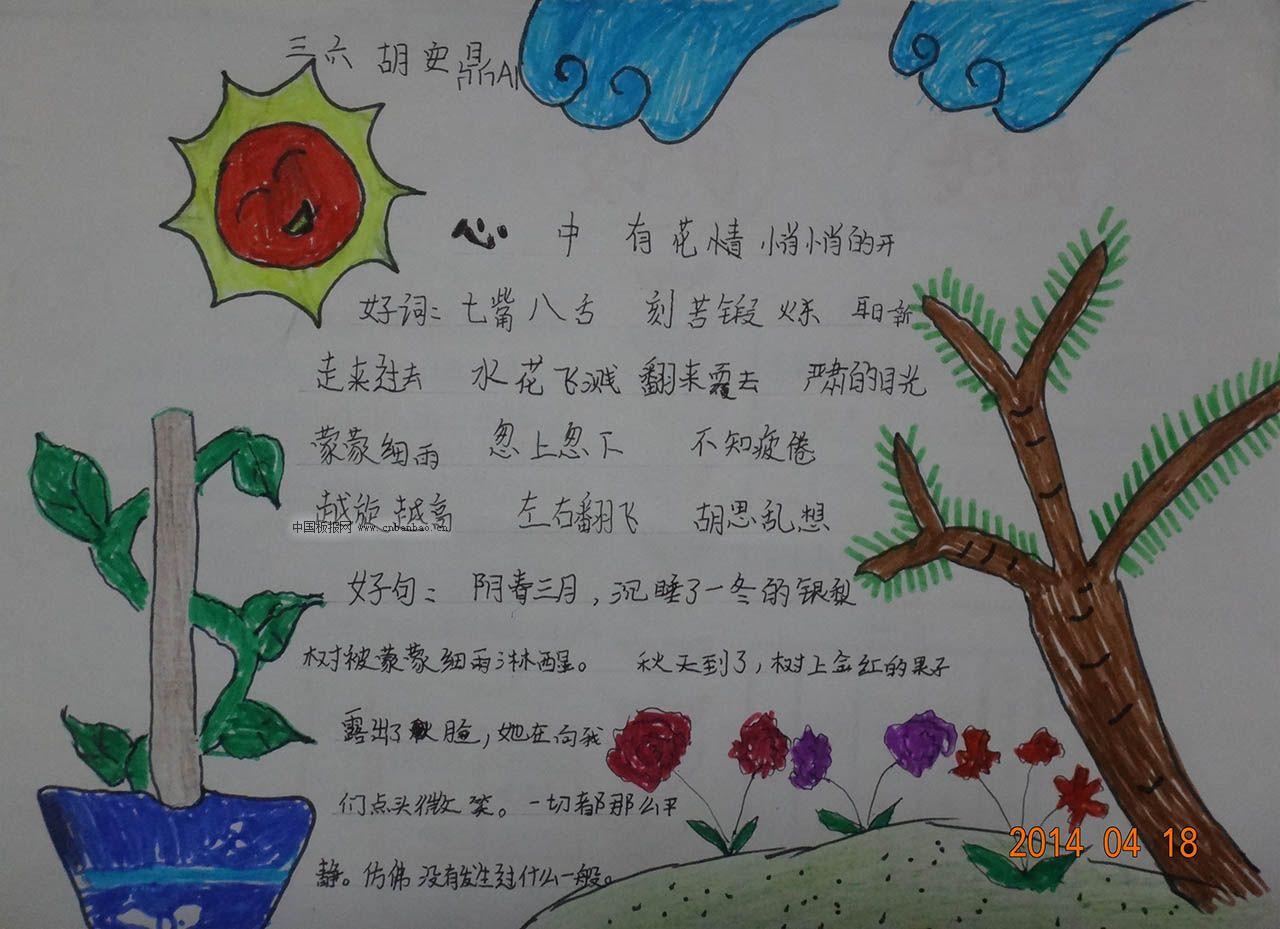 三六 胡 鼎AI
心 中 有 花 情 悄悄的开
好词: 七嘴八舌 刻苦锻炼 新
走来过去 水花飞溅 翻来覆去 严肃的目光
蒙蒙细雨 忽上忽下 不知疲倦
越旋越高 左右翻飞 胡思乱想
中国板报网 www.cnbanbao.cn
好句: 阴春三月,沉睡了一冬的银梨
树被蒙蒙细雨淋醒。 秋天到了,树上金红的果子
露出了 脸,她在向我
们点头微笑。一切都那么平
静。仿佛没有发生过什么一般。
2014 04 18